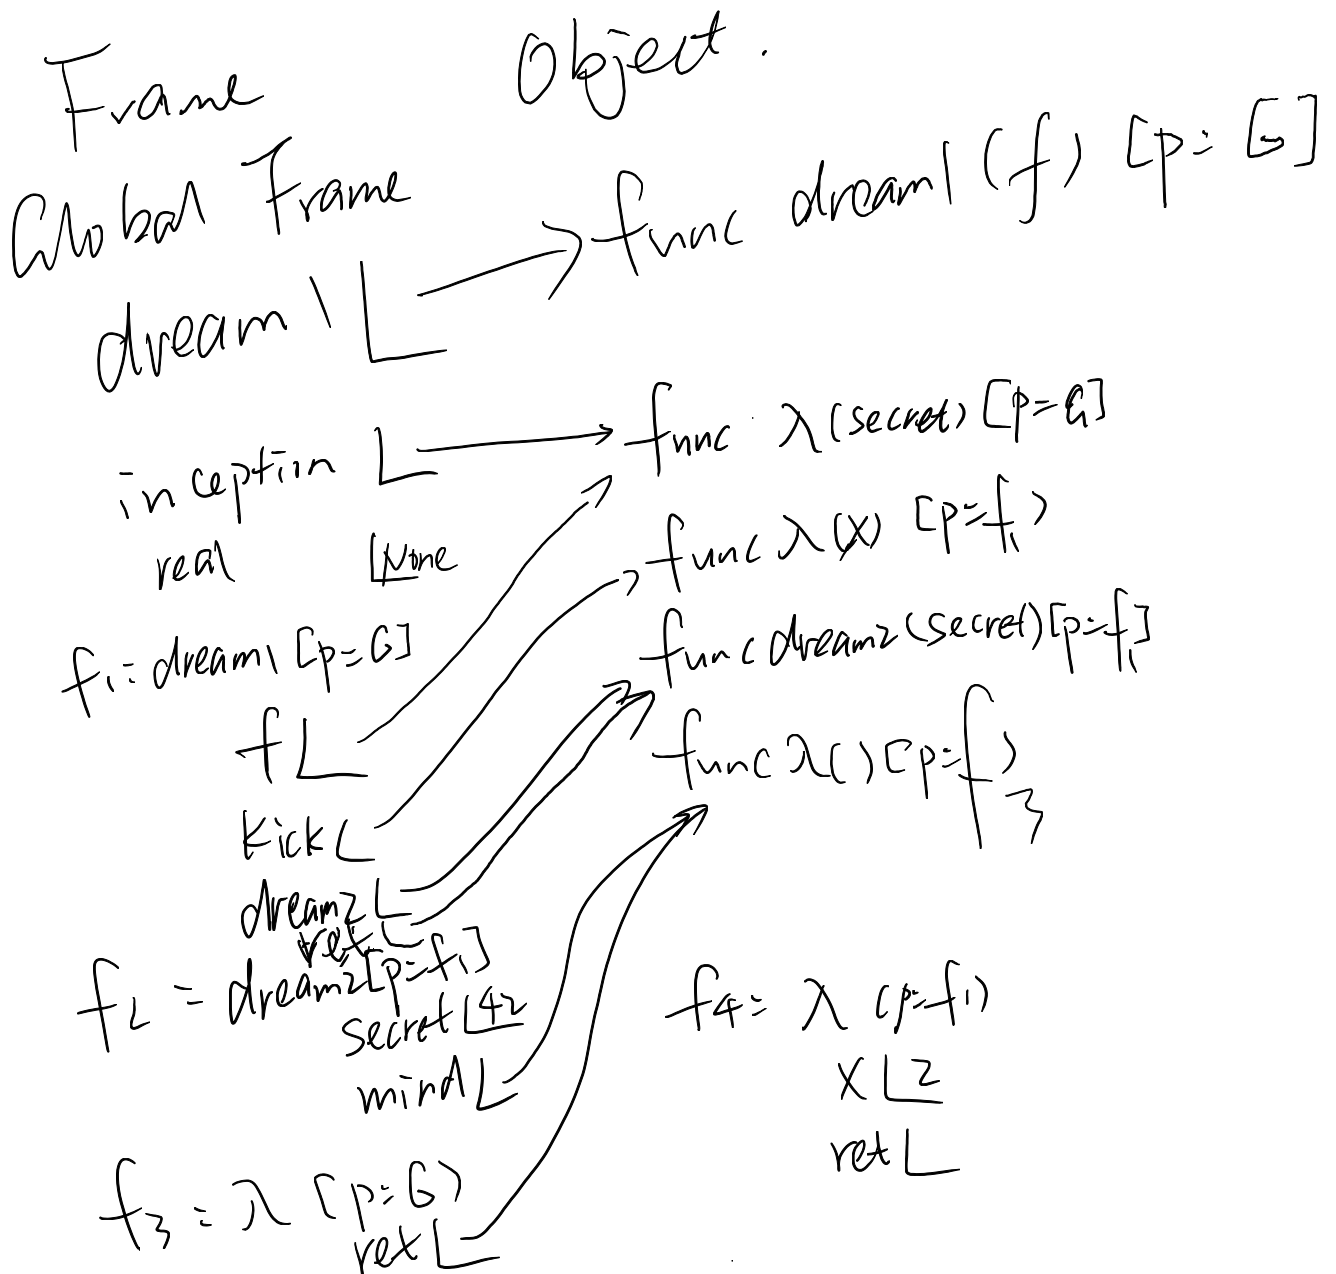 Frame Object.
Global Frame
dream1 func dream1(f) [p=G]
inception func λ(secret) [p=G]
real None
func λ(x) [p=f1)
f1=dream1 [p=G]
func dream2(secret)[p=f1]
f
func λ() [p=f3)
kick
dream2
ret
f2 = dream2[p=f1]
secret 42
mind
f3=λ [p=G)
ret
f4=λ (p=f1)
x 2
ret